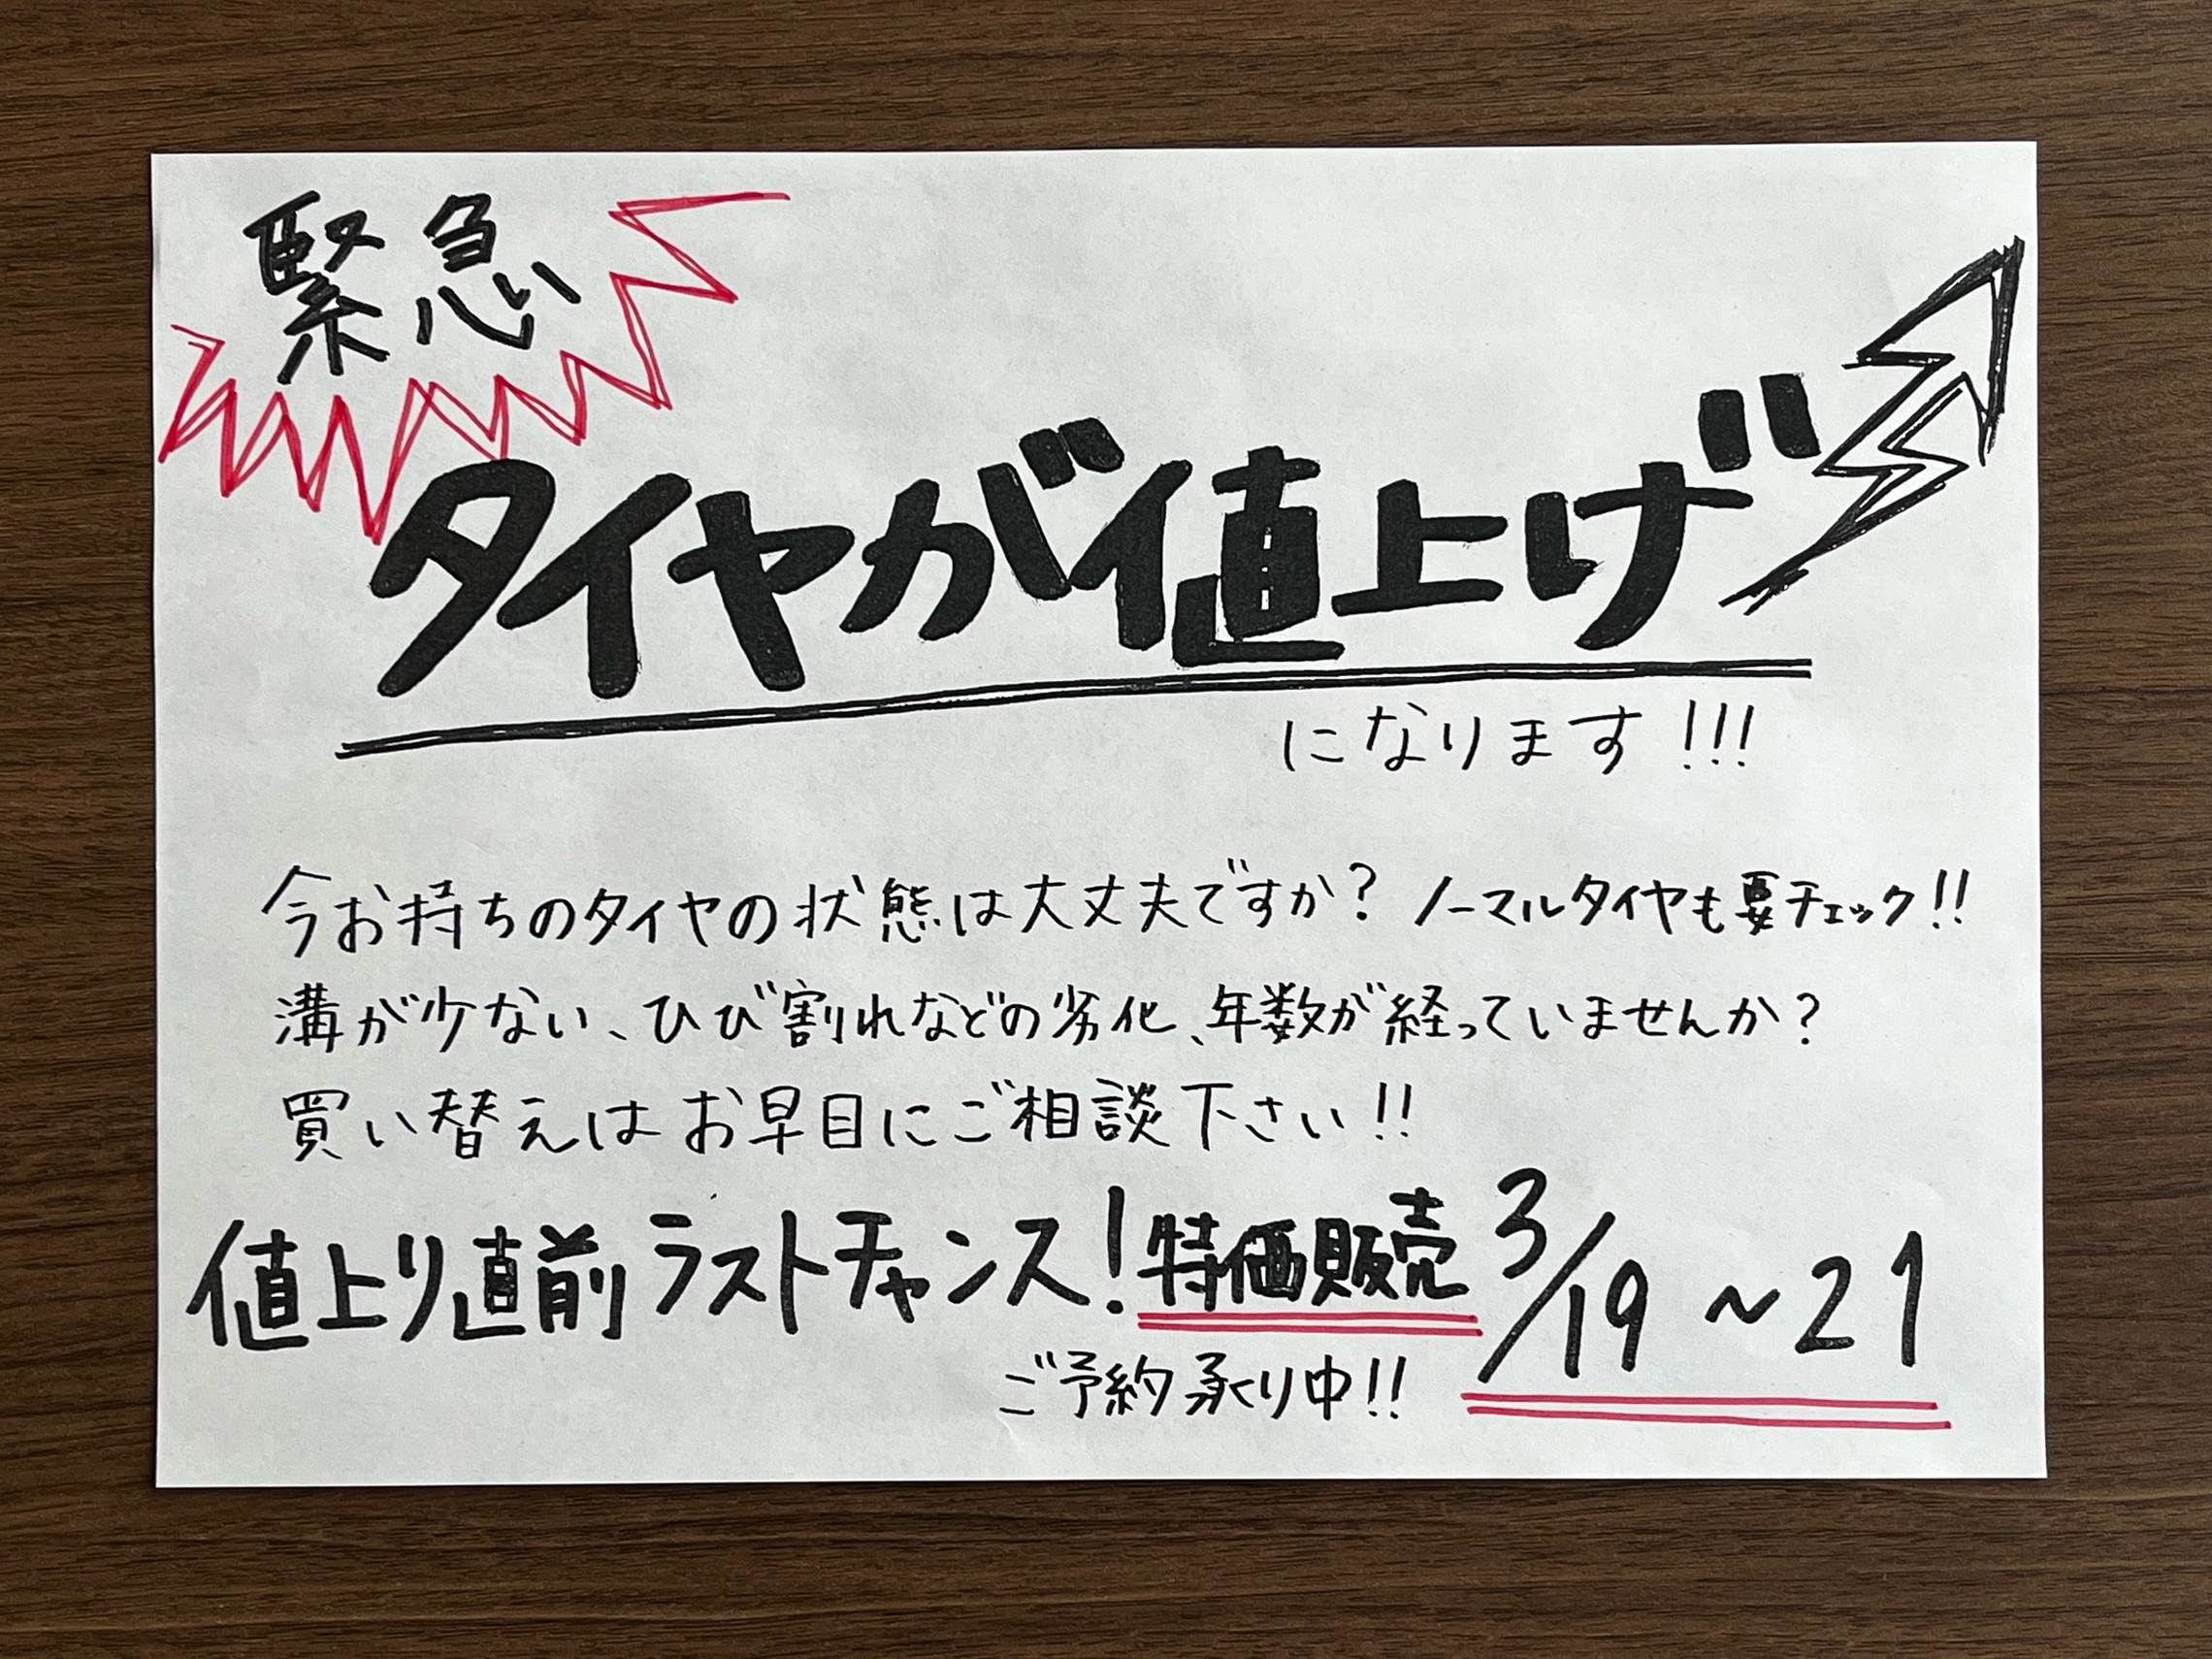 緊急
タイヤが値上げ
になります!!!
今お持ちのタイヤの状態は大丈夫ですか? ノーマルタイヤも要チェック!!
溝が少ない、ひび割れなどの劣化、年数が経っていませんか?
買い替えはお早目にご相談下さい!!
値上り直前 ラストチャンス! 特価販売 3/19 ~ 21
ご予約承り中!!